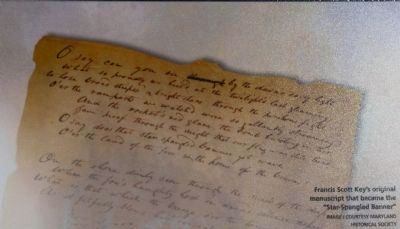 O say can you see by the dawn's early light
What so proudly we hail'd at the twilight's last gleaming,
Whose broad stripes & bright stars through the perilous fight
O'er the ramparts we watch'd, were so gallantly streaming?
And the rocket's red glare, the bomb bursting in air,
Gave proof through the night that our flag was still there
O say does that star spangled banner yet wave
O'er the land of the free & the home of the brave?
On the shore dimly seen through the mists of the deep,
Where the foe's haughty host in dread silence
What is that which the breeze,
Francis Scott Key's original
manuscript that became the
"Star-Spangled Banner"
IMAGE | COURTESY MARYLAND
HISTORICAL SOCIETY